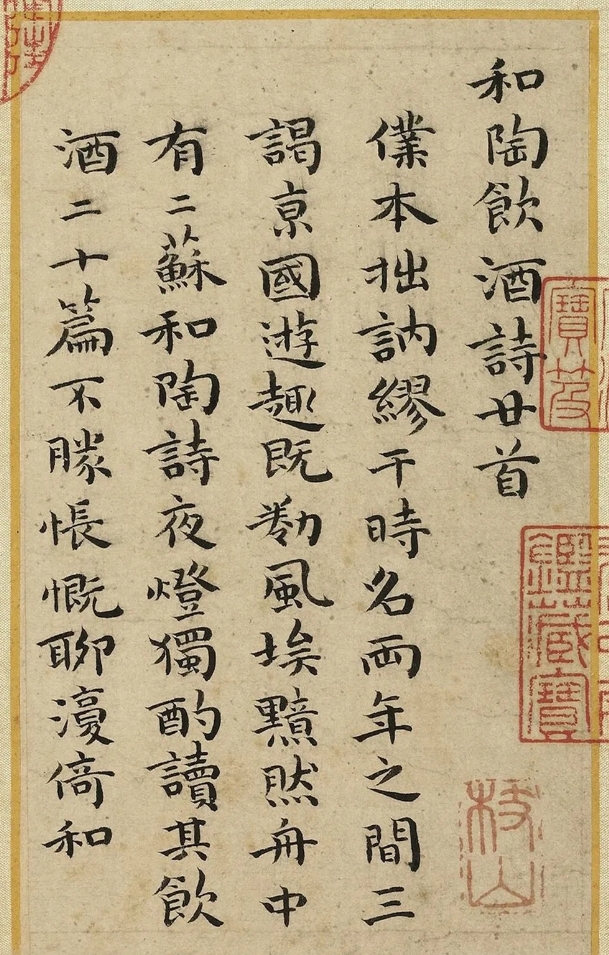 和陶飲酒詩廿首
僕本拙訥繆干時名兩年之間三
謁亰國遊趣既勌風埃黯然舟中
有二蘇和陶詩夜燈獨酌讀其飲
酒二十篇不勝悵慨聊漫倚和
寶笈
鑑藏寶
枝山